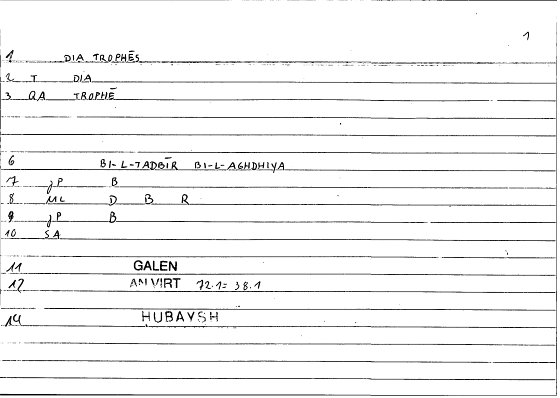 1
1 DIA TROPHĒS
2 T DIA
3 QA TROPHĒ
6 BI-L-TADBĪR BI-L-AGHDHIYA
7 jP B
8 ML D B R
9 jP B
10 SA
11 GALEN
12 AN VIRT 72.1= 38.1
14 HUBAYSH